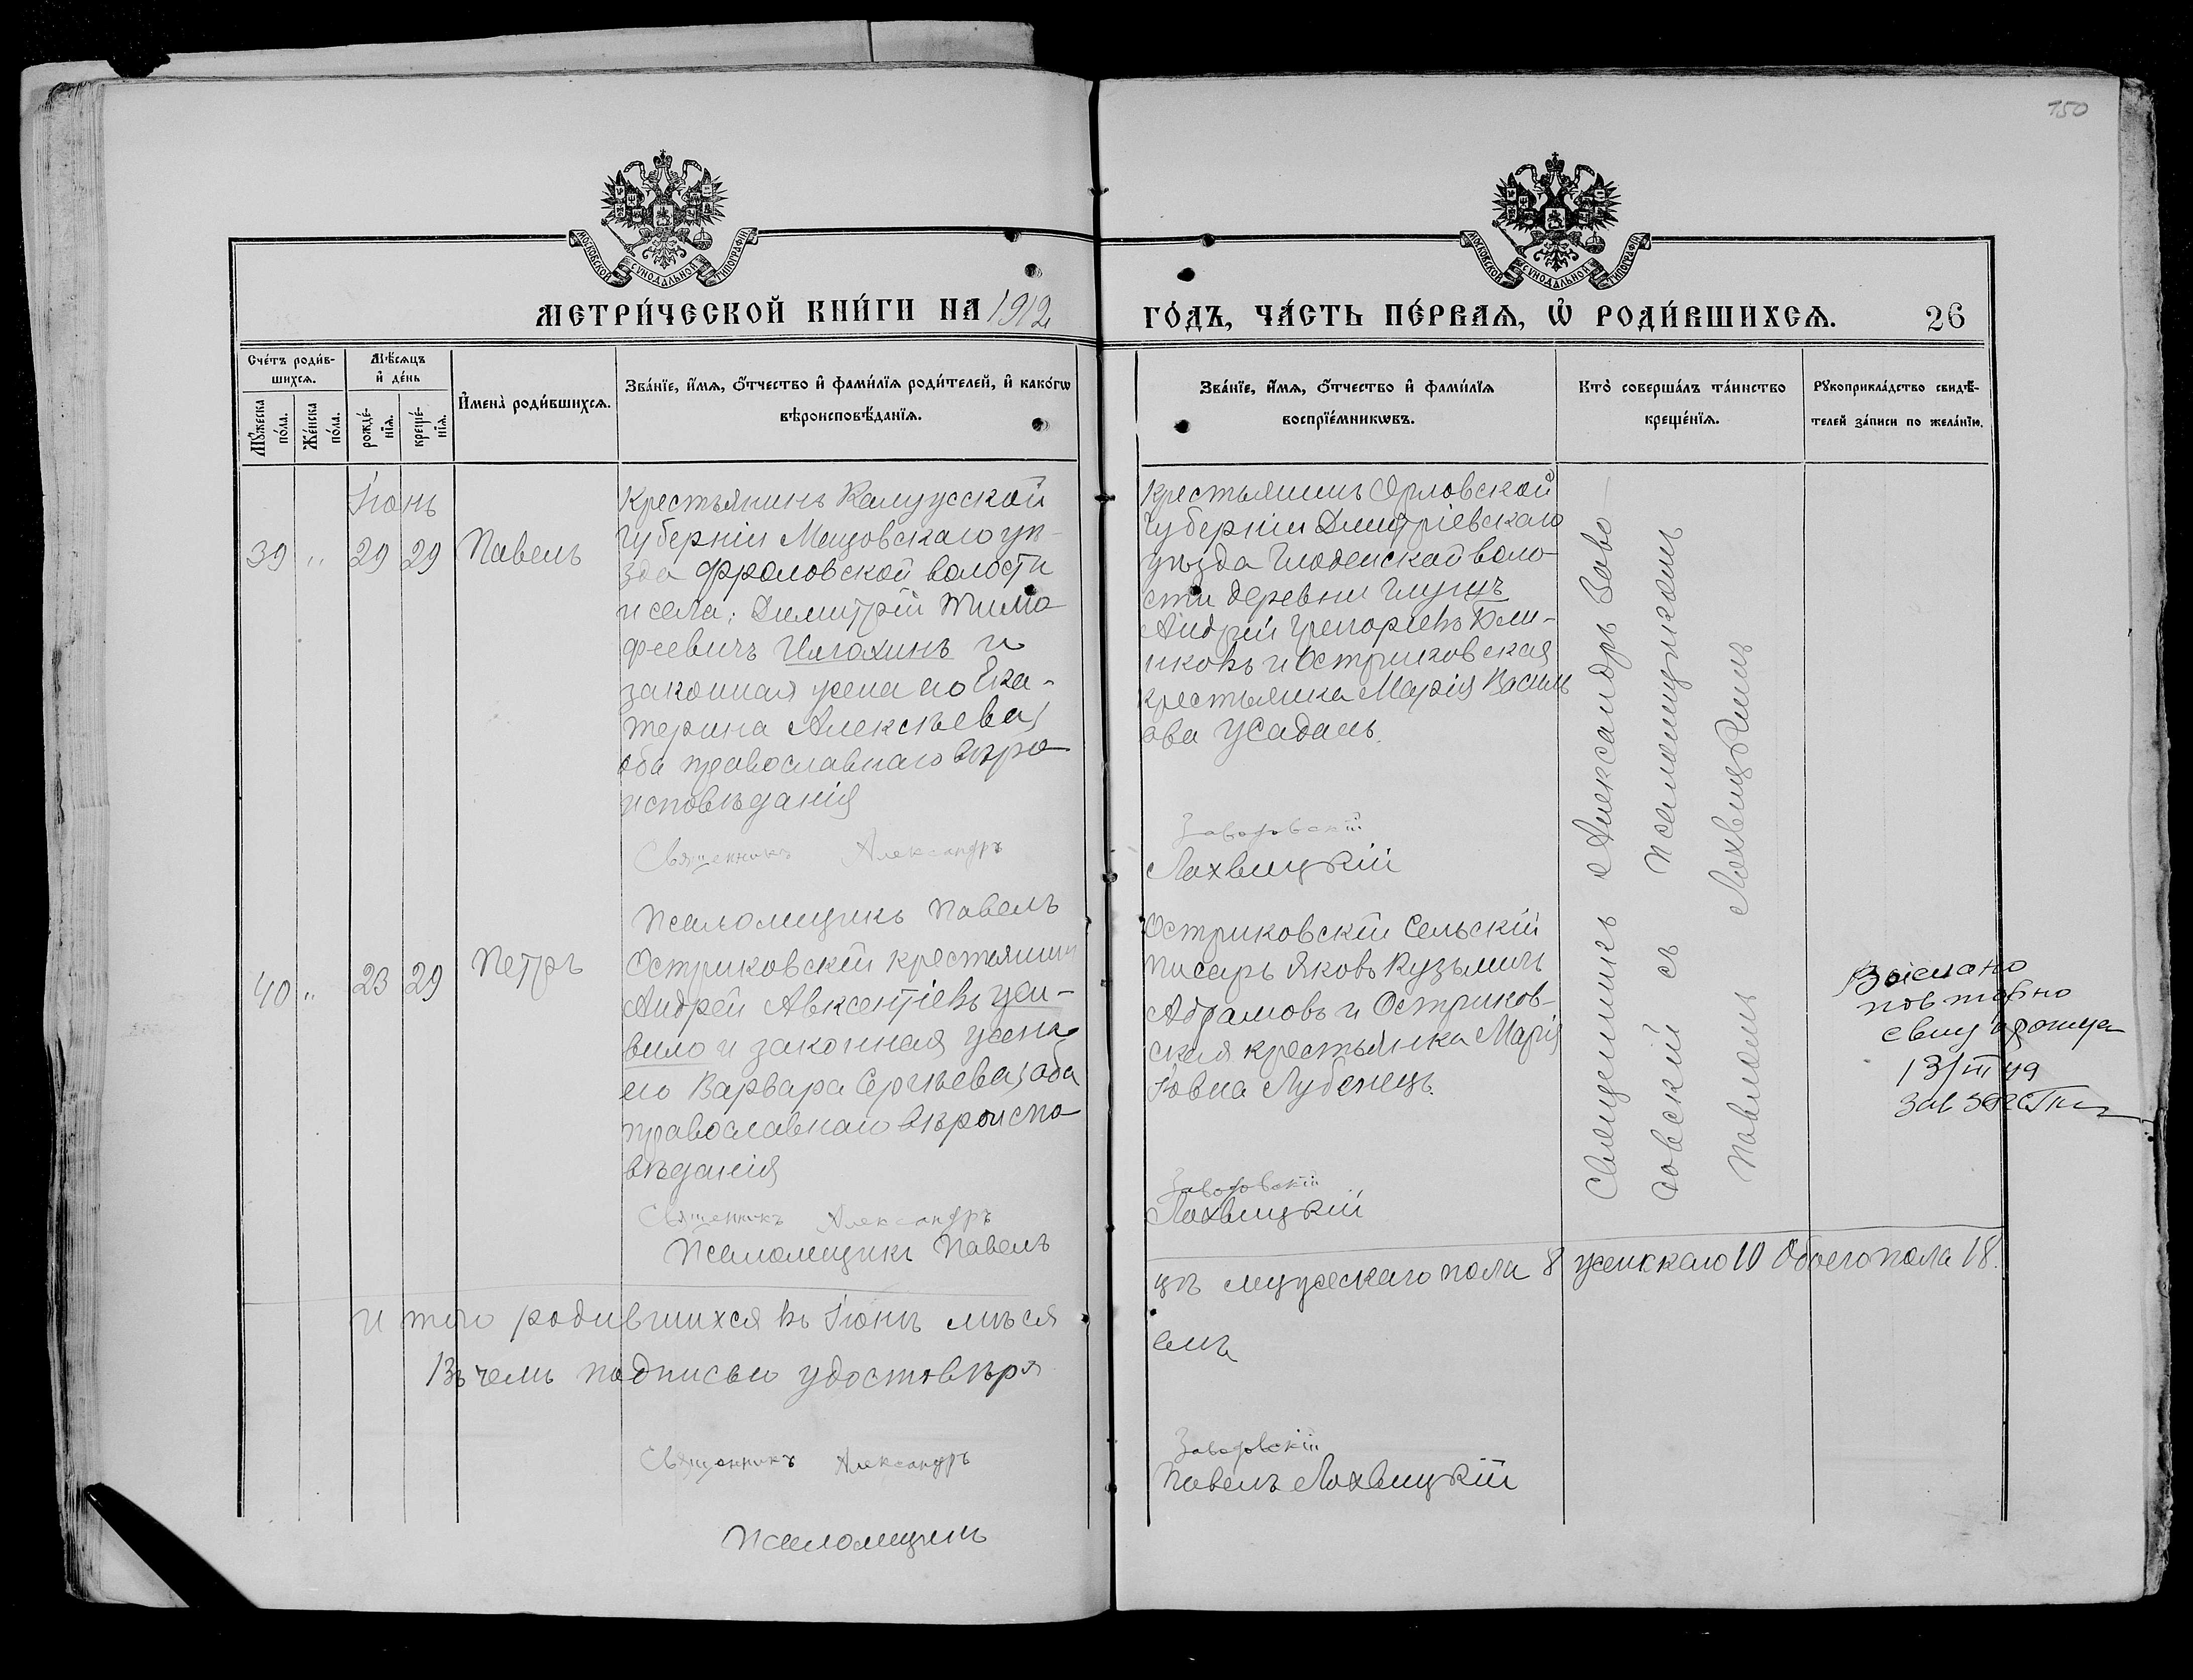 150
МОСКОВСКОЙ СѴНОДАЛЬНОЙ ТИПОГРАФІИ
МОСКОВСКОЙ СѴНОДАЛЬНОЙ ТИПОГРАФІИ
МЕТРИ́ЧЕСКОЙ КНИ́ГИ НА 1912
ГО́ДЪ, ЧА́СТЬ ПЕ́РВАЯ, Ѡ҆ РОДИ́ВШИХСЯ. 26
Сче́тъ роди́в-
шихся.
Мѣ́сяцъ
и҆ де́нь
Мꙋ́жеска
по́ла.
Же́нска
по́ла.
рожде́-
нїя.
креще́-
нїя.
И҆мена̀ роди́вшихся.
Зва́нїе, и҆́мя, ѻ҆́тчество и҆ фами́лїя роди́телей, и҆ како́гѡ
вѣроисповѣ́данїя.
Зва́нїе, и҆́мя, ѻ҆́тчество и҆ фами́лїя
воспрїе́мникѡвъ.
Кто̀ соверша́лъ та́инство
креще́нїя.
Рꙋкоприкла́дство свидѣ́-
телей за́писи по жела́нїю.
Іюнь
39 " 29 29 Павелъ
Крестьянинъ Калужской
губерніи Мещовскаго уѣ-
зда Фроловской волости
и села: Димитрій Тимо-
феевичъ Илюхинъ и
законная жена его Ека-
терина Алексѣева,
оба православнаго вѣро-
исповѣданія
Священникъ Александръ
Псаломщикъ Павелъ
Крестьянинъ Орловской
губерніи Дмитріевскаго
уѣзда Глоденской воло-
сти деревни
Андрей Григорьевъ
и Остриковская
крестьянка Марія Василь
ева Усадань.
Заводовскій
Лохвицкій
Священникъ Александръ Заво-
довскій съ Псаломщикомъ
Павломъ Лохвицкимъ
40 " 23 29 Петръ
Остриковскій крестьянинъ
Андрей Авксентіевъ
и законная жена
его Варвара Сергѣева, оба
православнаго вѣроиспо-
вѣданія
Священникъ Александръ
Псаломщикъ Павелъ
Остриковскій Сельскій
писарь Яковъ Кузьмичъ
Абрамовъ и Остриков-
ская крестьянка Марія
Іовна Лубенецъ.
Заводовскій
Лохвицкій
повторно
13/III 49
Итого родившихся въ Іюнѣ мѣся
цѣ мужескаго пола 8 женскаго 10 Обоего пола 18.
Въ чемъ подписью удостовѣря
емъ
Священникъ Александръ
Заводовскій
Псаломщикъ
Павелъ Лохвицкій